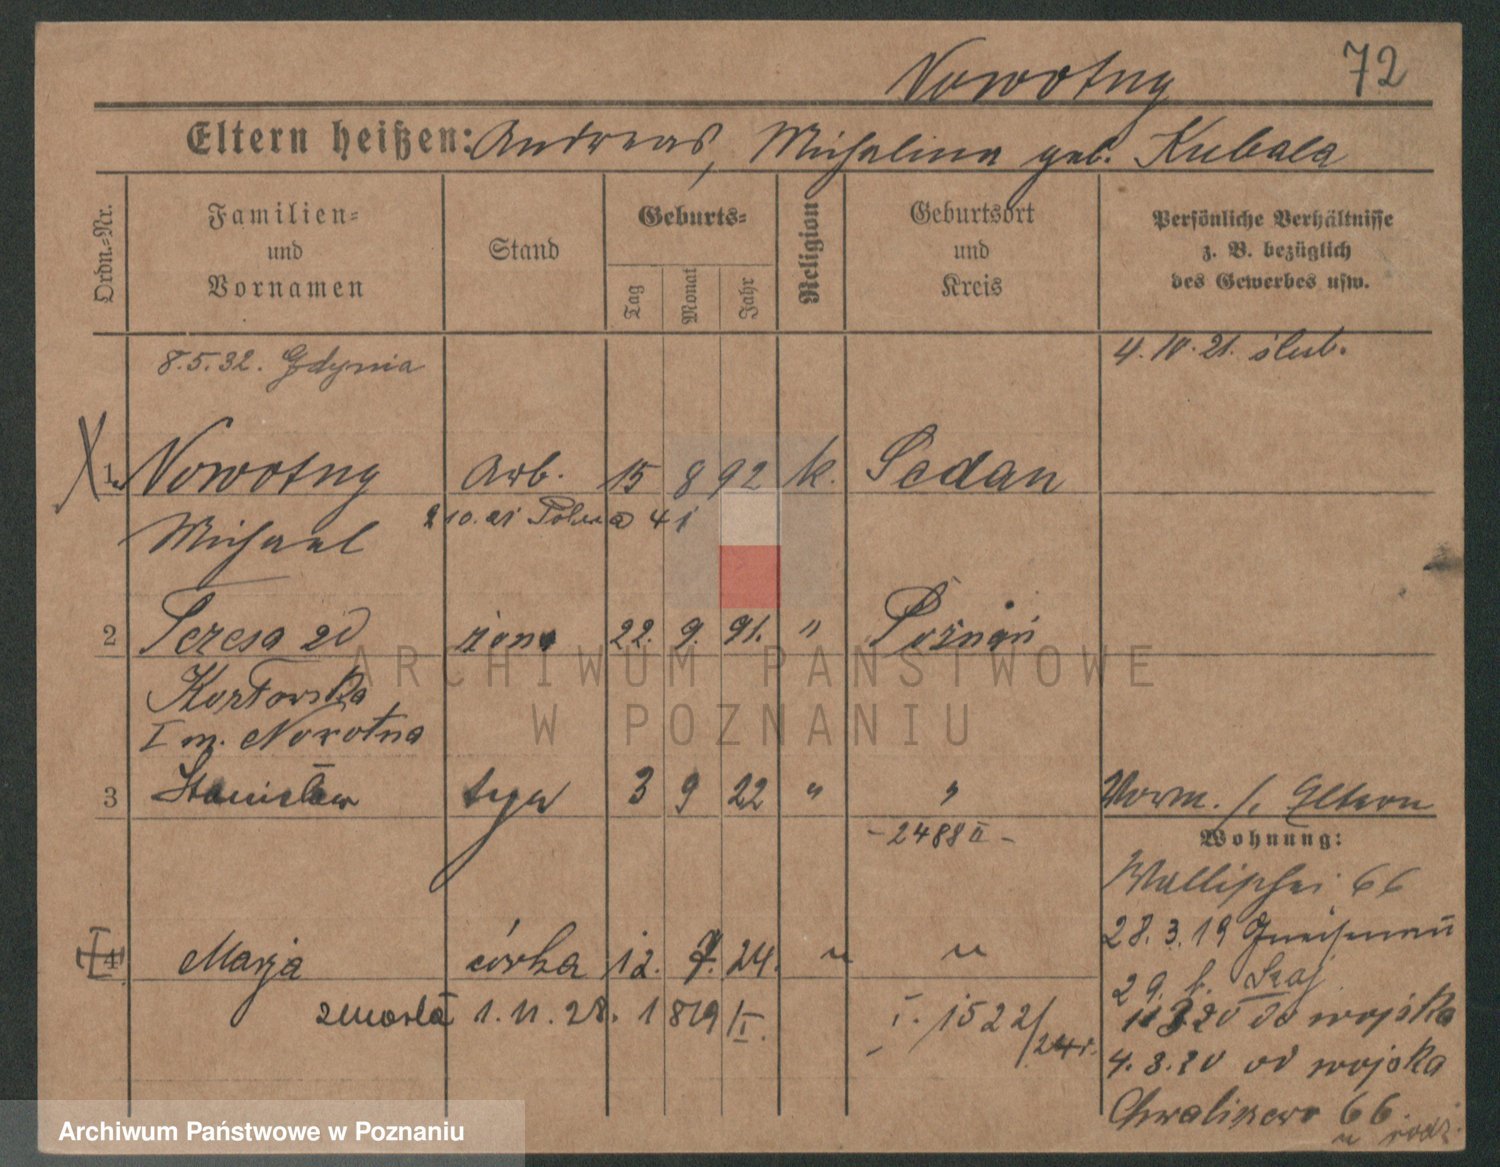 72
Nowotny
Eltern heißen: Andreas, Michalina geb. Kubala
Ordn.=Nr.
Familien=
und
Vornamen
Stand
Geburts=
Tag
Monat
Jahr
Religion
Geburtsort
und
Kreis
Persönliche Verhältnisse
z. B. bezüglich
des Gewerbes usw.
8.5.32. Gdynia
4.10.21. ślub.
1. Nowotny Arb. 15 8 92 k. Sedan
Michael
2 Teresa zd żona 22. 9. 91. " Poznań
Kozłowska
I m. Nowotna
3 Stanisław 3 9 22 " "
Vorm. s. Eltern
- 2488 II -
Wohnung:
Wallischei 66
28. 3. 19 Gneisenau
4 Marja córka 12. 24. " "
zmarła 1. 11. 28. 1819 II.
I. 1522/24r.
do wojska
4. 8. 20 od wojska
Chwaliszewo 66.
u rodz.
ARCHIWUM PAŃSTWOWE
W POZNANIU
Archiwum Państwowe w Poznaniu